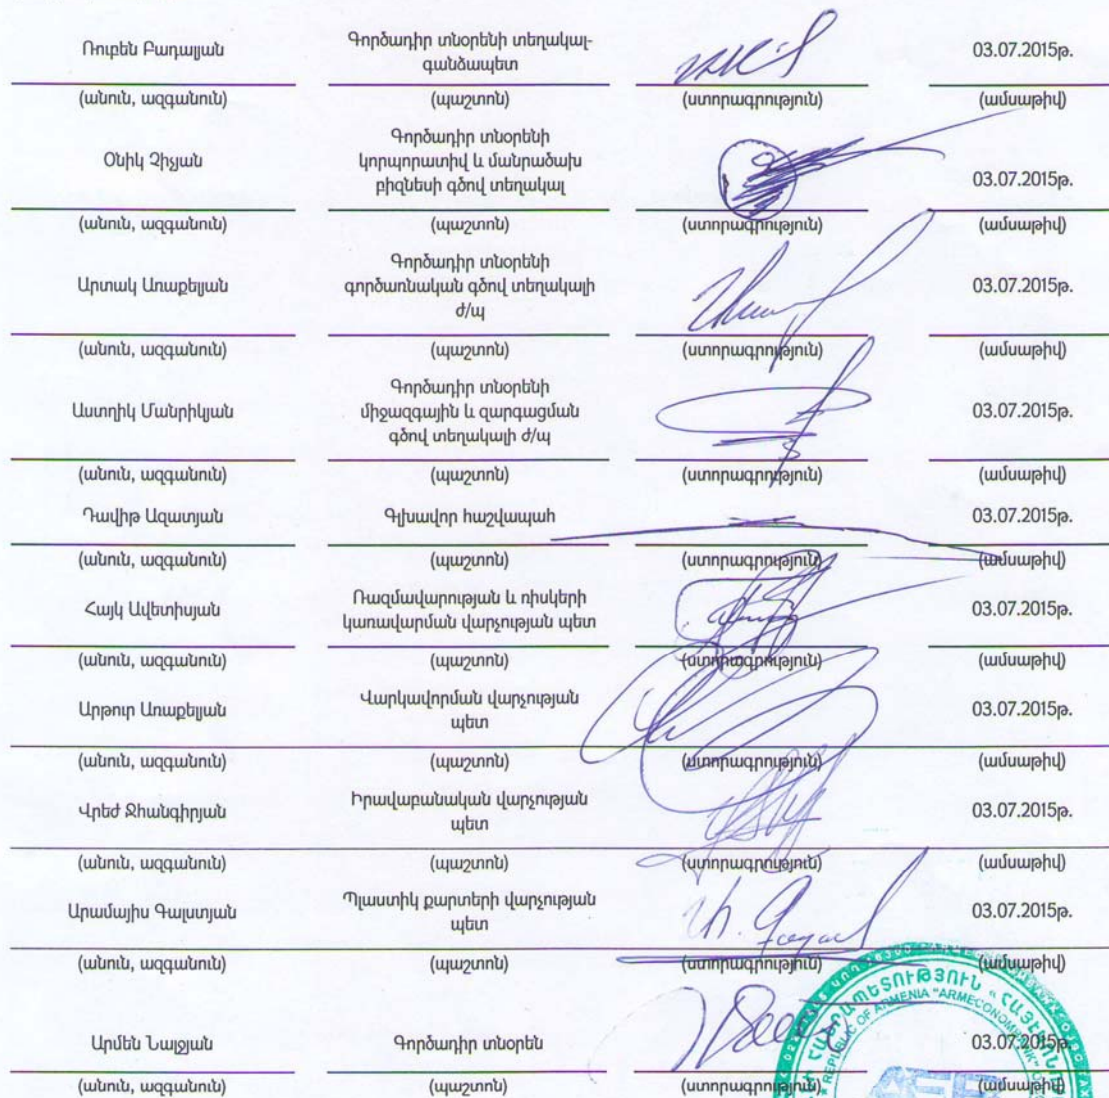 Ռուբեն Բադալյան
Գործադիր տնօրենի տեղակալ-
գանձապետ
03.07.2015թ.
(անուն, ազգանուն) (պաշտոն) (ստորագրություն) (ամսաթիվ)
Օնիկ Չիչյան
Գործադիր տնօրենի
կորպորատիվ և մանրածախ
բիզնեսի գծով տեղակալ
03.07.2015թ.
(անուն, ազգանուն) (պաշտոն) (ստորագրություն) (ամսաթիվ)
Արտակ Առաքելյան
Գործադիր տնօրենի
գործառնական գծով տեղակալի
ժ/պ
03.07.2015թ.
(անուն, ազգանուն) (պաշտոն) (ստորագրություն) (ամսաթիվ)
Աստղիկ Մանրիկյան
Գործադիր տնօրենի
միջազգային և զարգացման
գծով տեղակալի ժ/պ
03.07.2015թ.
(անուն, ազգանուն) (պաշտոն) (ստորագրություն) (ամսաթիվ)
Դավիթ Ազատյան Գլխավոր հաշվապահ 03.07.2015թ.
(անուն, ազգանուն) (պաշտոն) (ստորագրություն) (ամսաթիվ)
Հայկ Ավետիսյան
Ռազմավարության և ռիսկերի
կառավարման վարչության պետ
03.07.2015թ.
(անուն, ազգանուն) (պաշտոն) (ստորագրություն) (ամսաթիվ)
Արթուր Առաքելյան
Վարկավորման վարչության
պետ
03.07.2015թ.
(անուն, ազգանուն) (պաշտոն) (ստորագրություն) (ամսաթիվ)
Վրեժ Ջհանգիրյան
Իրավաբանական վարչության
պետ
03.07.2015թ.
(անուն, ազգանուն) (պաշտոն) (ստորագրություն) (ամսաթիվ)
Արամայիս Գալստյան
Պլաստիկ քարտերի վարչության
պետ
03.07.2015թ.
(անուն, ազգանուն) (պաշտոն) (ստորագրություն) (ամսաթիվ)
Արմեն Նալջյան Գործադիր տնօրեն 03.07.2015թ.
(անուն, ազգանուն) (պաշտոն) (ստորագրություն) (ամսաթիվ)
REPUBLIC OF ARMENIA